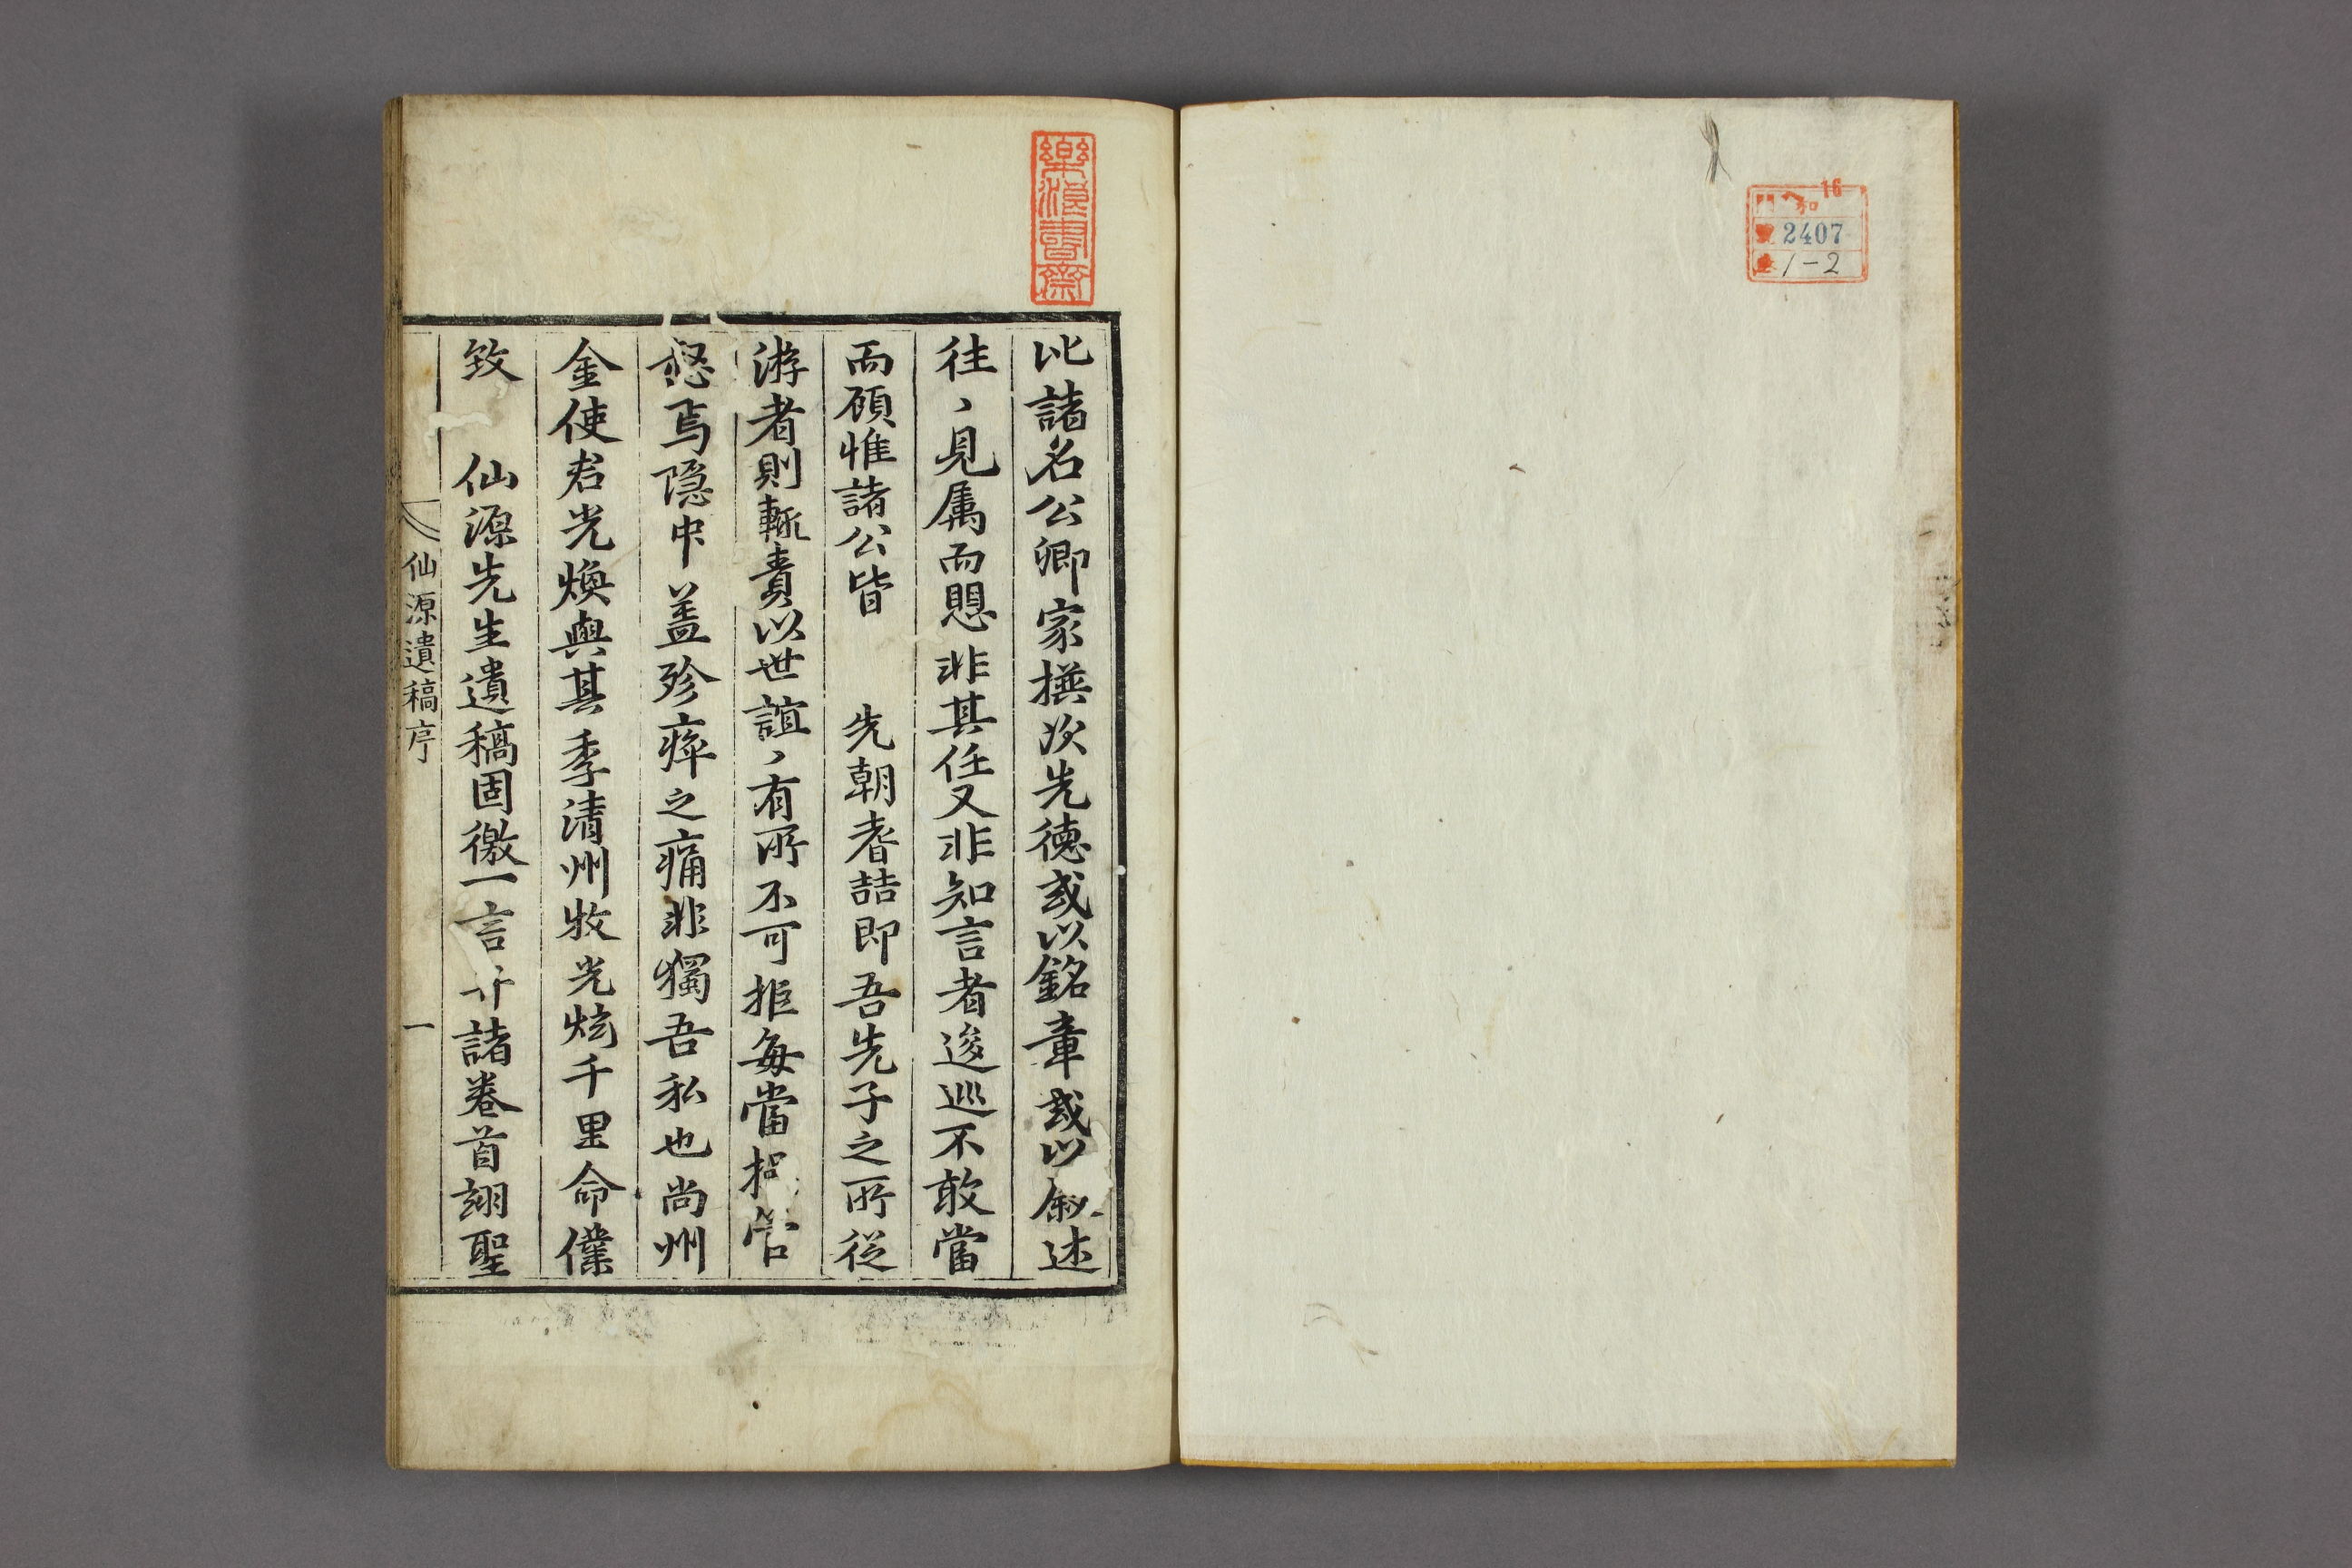 16
和
2407
1-2
樂浪書齋
比諸名公卿家撰次先德或以銘章或以叙述
往、見属而思非其任又非知言者逡巡不敢當
而顧惟諸公皆 先朝耆喆即吾先子之所從
游者則輒責以世誼、有所不可拒每當把管
怒焉隠中盖殄瘁之痛非獨吾私也尚州
金使君光煥與其季清州牧光炫千里命僕
致 仙源先生遺稿固徼一言弁諸卷首翊聖
仙源遺稿序
一